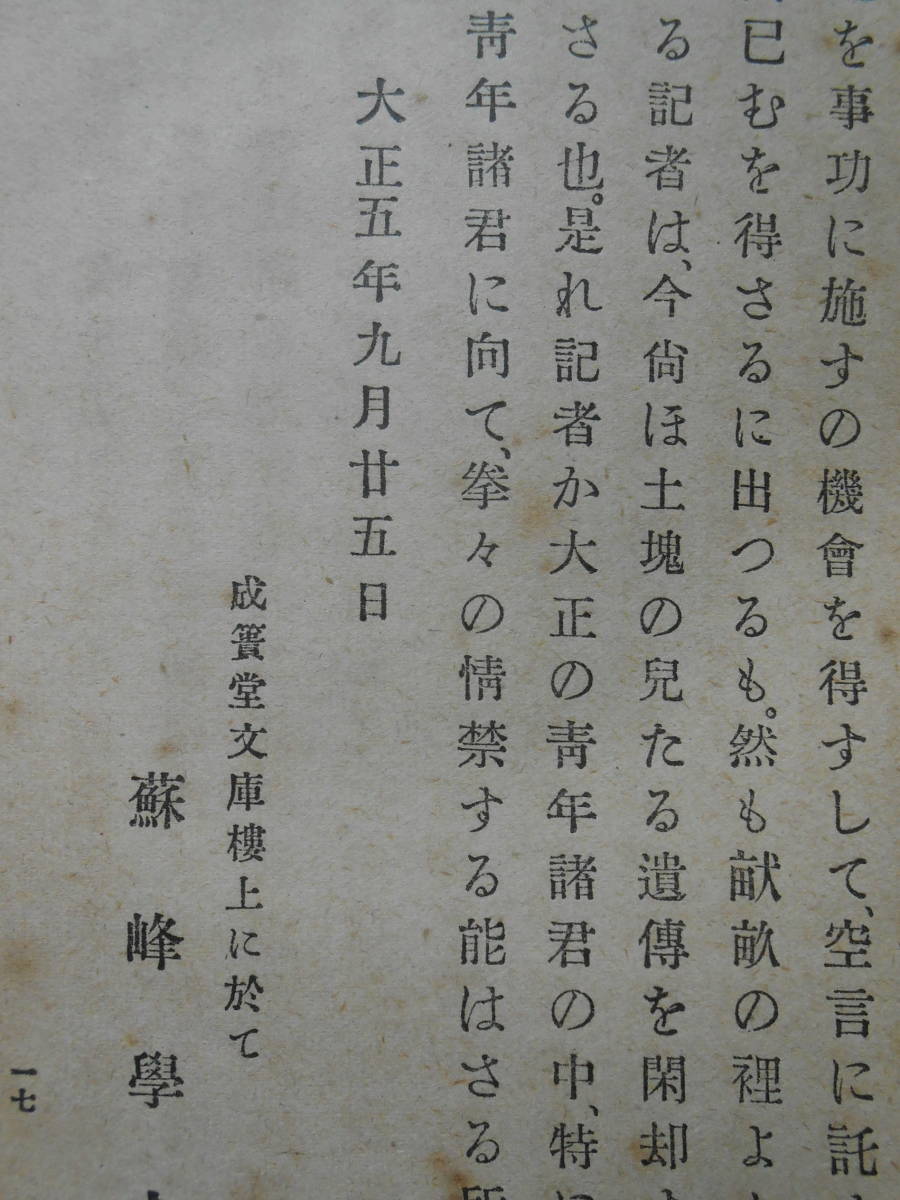 を事功に施すの機會を得すして、空言に託
已むを得さるに出つるも。然も畎畝の裡よ
る記者は、今尙ほ土塊の兒たる遺傳を閑却
さる也。是れ記者か大正の靑年諸君の中、特に
靑年諸君に向て、拳々の情禁する能はさる所
大正五年九月廿五日
成簣堂文庫樓上に於て
蘇峰學
一七